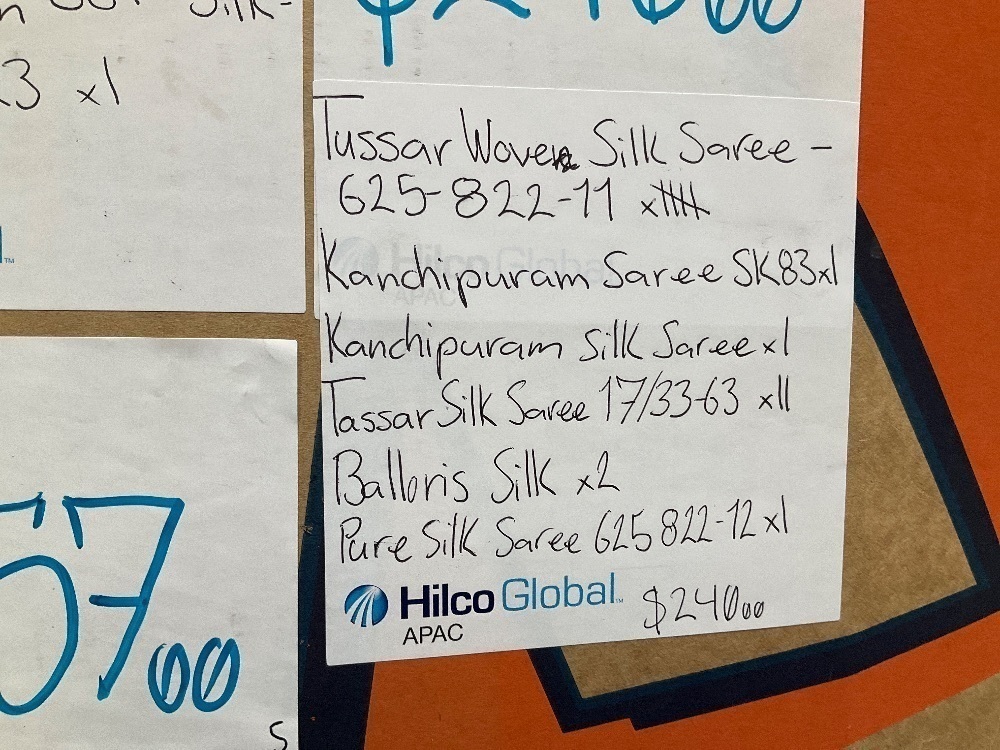 Silk-
x1
Tussar Woven Silk Saree -
625-822-11 x卌
Kanchipuram Saree SK83x1
Kanchipuram Silk Saree x1
Tassar Silk Saree 17/33-63 x11
Balloris Silk x2
Pure Silk Saree 625 822-12 x1
Hilco Global™
APAC
$240.00
57.00